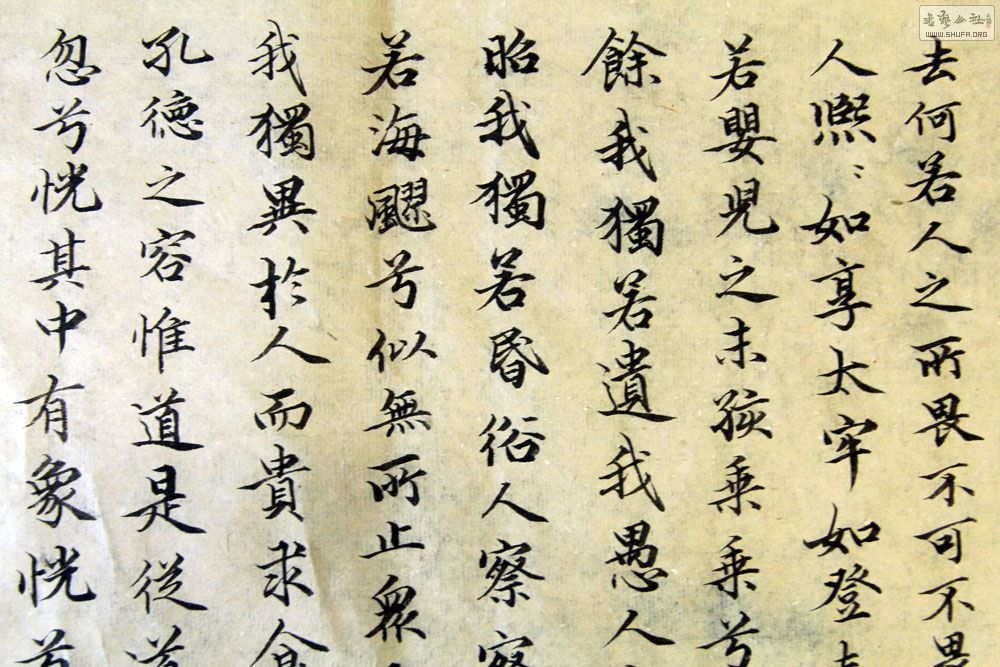 去何若人之所畏不可不畏
人熈〻如享太牢如登
若嬰児之未孩乗乗兮
餘我獨若遺我愚人
昭我獨若昏俗人察察
若海飂兮似無所止衆
我獨異於人而貴求食
孔德之容惟道是從道
忽兮恍其中有象恍兮
书艺公社
WWW.SHUFA.ORG